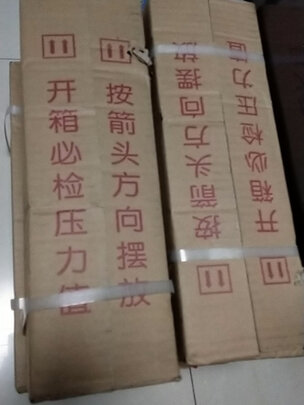 开箱必检压力值
按箭头方向摆放
按箭头方向摆放
开箱必检压力值